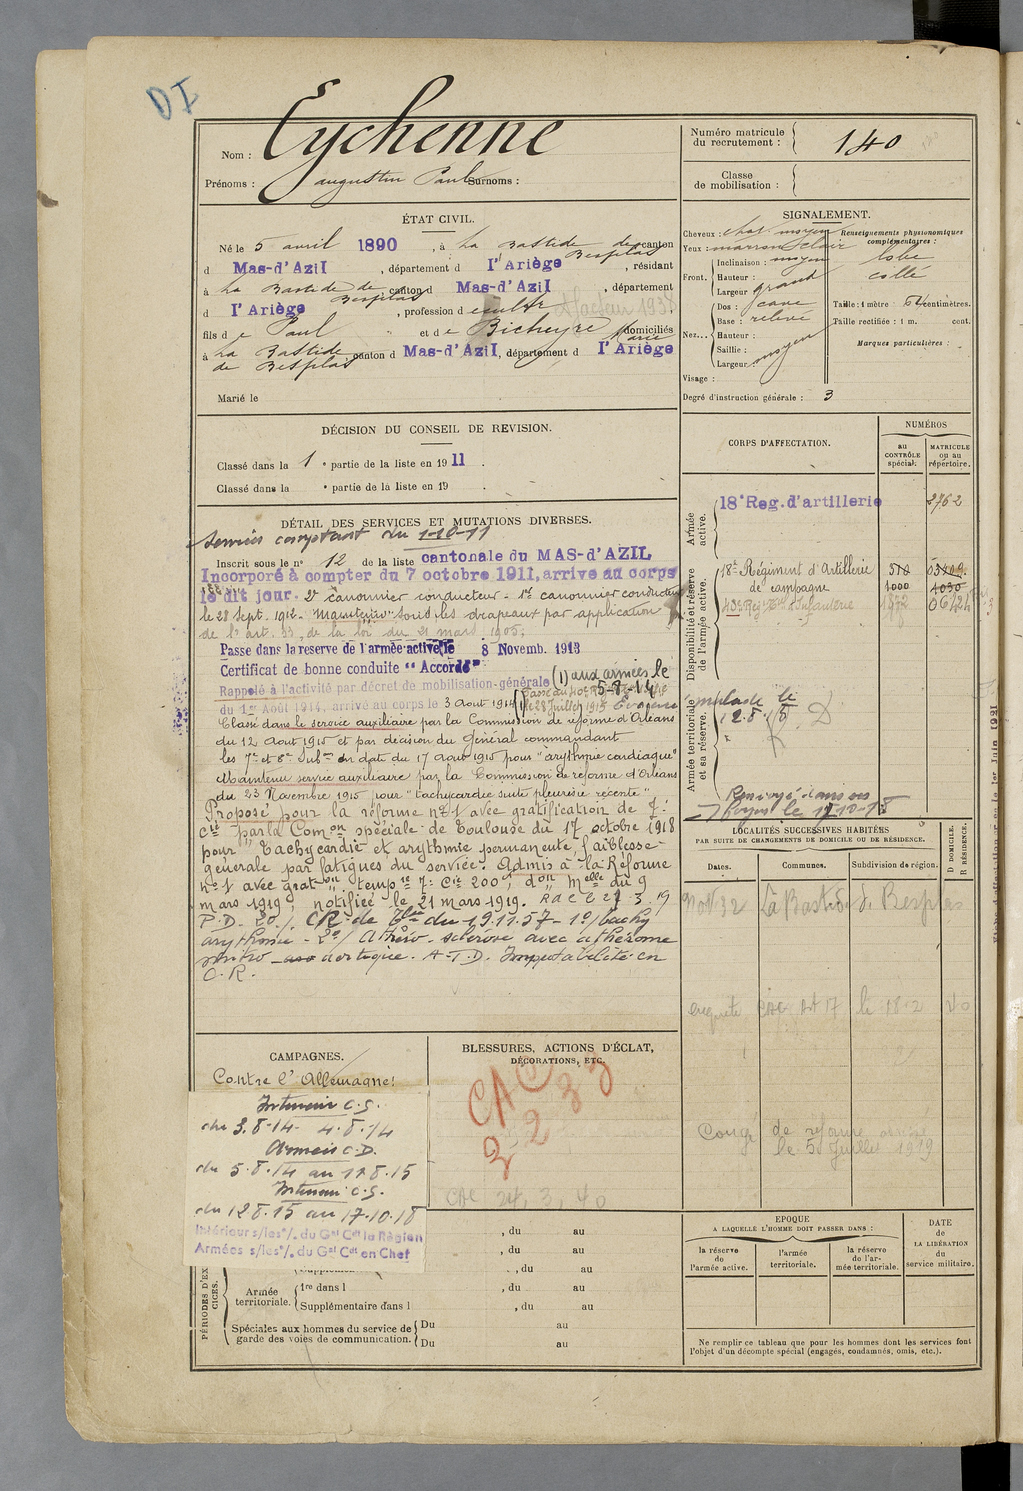 DI
Nom : Eychenne
Prénoms : augustin Paul Surnoms :
Numéro matricule
du recrutement : 140
Classe
de mobilisation :
ÉTAT CIVIL.
Né le 5 avril 1890, à La Bastide de Besplas canton
d Mas-d'Azil, département d l'Ariège, résidant
à La Bastide de Besplas canton d Mas-d'Azil, département
d l'Ariège, profession d
fils de Paul et de Bicheyre Marie domiciliés
à La Bastide de Besplas canton d Mas-d'Azil, département d l'Ariège
Marié le
SIGNALEMENT.
Cheveux : chat. moyen
Yeux : marron clair
Front. Inclinaison : moyen
Hauteur : grand
Largeur
Nez... Dos : cave
Base : relevé
Hauteur :
Saillie :
Largeur : moyen
Visage :
Renseignements physionomiques
complémentaires :
lobe
collé
Taille : 1 mètre centimètres.
Taille rectifiée : 1 m. cent.
Marques particulières :
Degré d'instruction générale : 3
DÉCISION DU CONSEIL DE REVISION.
Classé dans la 1e partie de la liste en 1911.
Classé dans la e partie de la liste en 19 .
CORPS D'AFFECTATION.
NUMÉROS
au CONTRÔLE spécial.
MATRICULE ou au répertoire.
Armée active.
18e Reg. d'artillerie 2762
Disponibilité et réserve de l'armée active.
18e Régiment d'Artillerie 510
de campagne 1000 1030
Armée territoriale et sa réserve.
malade le
12.8.15
Renvoyé dans ses
foyers le 17-10-18
DÉTAIL DES SERVICES ET MUTATIONS DIVERSES.
Services comptant du 1-10-11
Inscrit sous le n° 12 de la liste cantonale du MAS-d'AZIL
Incorporé à compter du 7 octobre 1911, arrivé au corps
le dit jour. 2e canonnier conducteur - 1er canonnier conducteur
le 28 Sept. 1912. Maintenu sous les drapeaux par application
de l'art. 33, de la loi du 21 mars 1905.
Passé dans la reserve de l'armée active le 8 Novemb. 1913
Certificat de bonne conduite "Accordé"
Rappelé à l'activité par décret de mobilisation générale (1) aux armées le 5-8-14
du 1er Août 1914, arrivé au corps le 3 Aout 1914 (1)
Classé dans le service auxiliaire par la Commission de reforme d'Orléans
du 12 Aout 1915 et par décision du Général commandant
les 7e et 8e Subons en date du 17 Aout 1915 pour "arythmie cardiaque"
Maintenu service auxiliaire par la Commission de reforme d'Orléans
du 23 Novembre 1915 pour "tachycardie suite pleurésie récente"
Proposé pour la réforme n° 1 avec gratification de 7e
cie par la Comon spéciale de Toulouse du 17 octobre 1918
pour "Tachycardie et arythmie permanente, faiblesse
générale par fatigues du service. Admis à la Réforme
n° 1 avec graton tempre 7e Cie 200f, don Melle du 9
mars 1919 notifiée le 21 mars 1919.
P.D. 20/. CR de Tlse du 19.11.57 - 1°/ tachy
arythmie - 2°/ Athéro-sclérose avec athérome
aortique. A.T.D. Imputabilité en
C.R.
LOCALITÉS SUCCESSIVES HABITÉES
PAR SUITE DE CHANGEMENTS DE DOMICILE OU DE RÉSIDENCE.
Dates. Communes. Subdivision de région. D. DOMICILE. R. RÉSIDENCE.
Nov. 32 La Bastide de Besplas
enquête CAC Art 17 le 18.2 40
Congé de réforme
le 5 Juillet 1919
CAMPAGNES.
Contre l'Allemagne
Intérieur C.S.
du 3.8.14 - 4.8.14
Armées C.D.
du 5.8.14 au 11 8.15
Intérieur C.S.
du 12 8.15 au 17.10.18
Intérieur s/les o/. du Gal Cdt la Région
Armées s/les o/. du Gal Cdt en Chef
BLESSURES, ACTIONS D'ÉCLAT,
DÉCORATIONS, ETC.
CAC
CAC 24, 3, 40
PÉRIODES D'EXERCICES.
, du au
, du au
Supplément , du au
Armée territoriale. 1re dans l , du au
Supplémentaire dans l , du au
Spéciales aux hommes du service de
garde des voies de communication.
Du au
Du au
EPOQUE
A LAQUELLE L'HOMME DOIT PASSER DANS :
la réserve de l'armée active.
l'armée territoriale.
la réserve de l'armée territoriale.
DATE
de
LA LIBÉRATION
du
service militaire.
Ne remplir ce tableau que pour les hommes dont les services font
l'objet d'un décompte spécial (engagés, condamnés, omis, etc.).